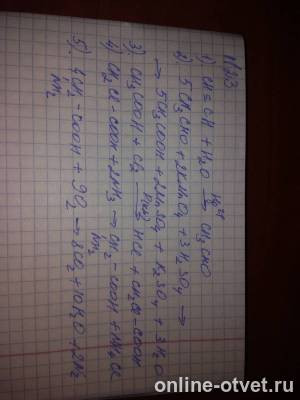 №23
1) CH≡CH + H₂O —Hg²⁺→ CH₃CHO
2) 5CH₃CHO + 2KMnO₄ + 3H₂SO₄ →
→ 5CH₃COOH + 2MnSO₄ + K₂SO₄ + 3H₂O
3) CH₃COOH + Cl₂ —P(кр)→ HCl + CH₂Cl-COOH
4) CH₂Cl-COOH + 2NH₃ → CH₂-COOH + NH₄Cl
NH₂
5) 4CH₂-COOH + 9O₂ → 8CO₂ + 10H₂O + 2N₂
NH₂
online-otvet.ru